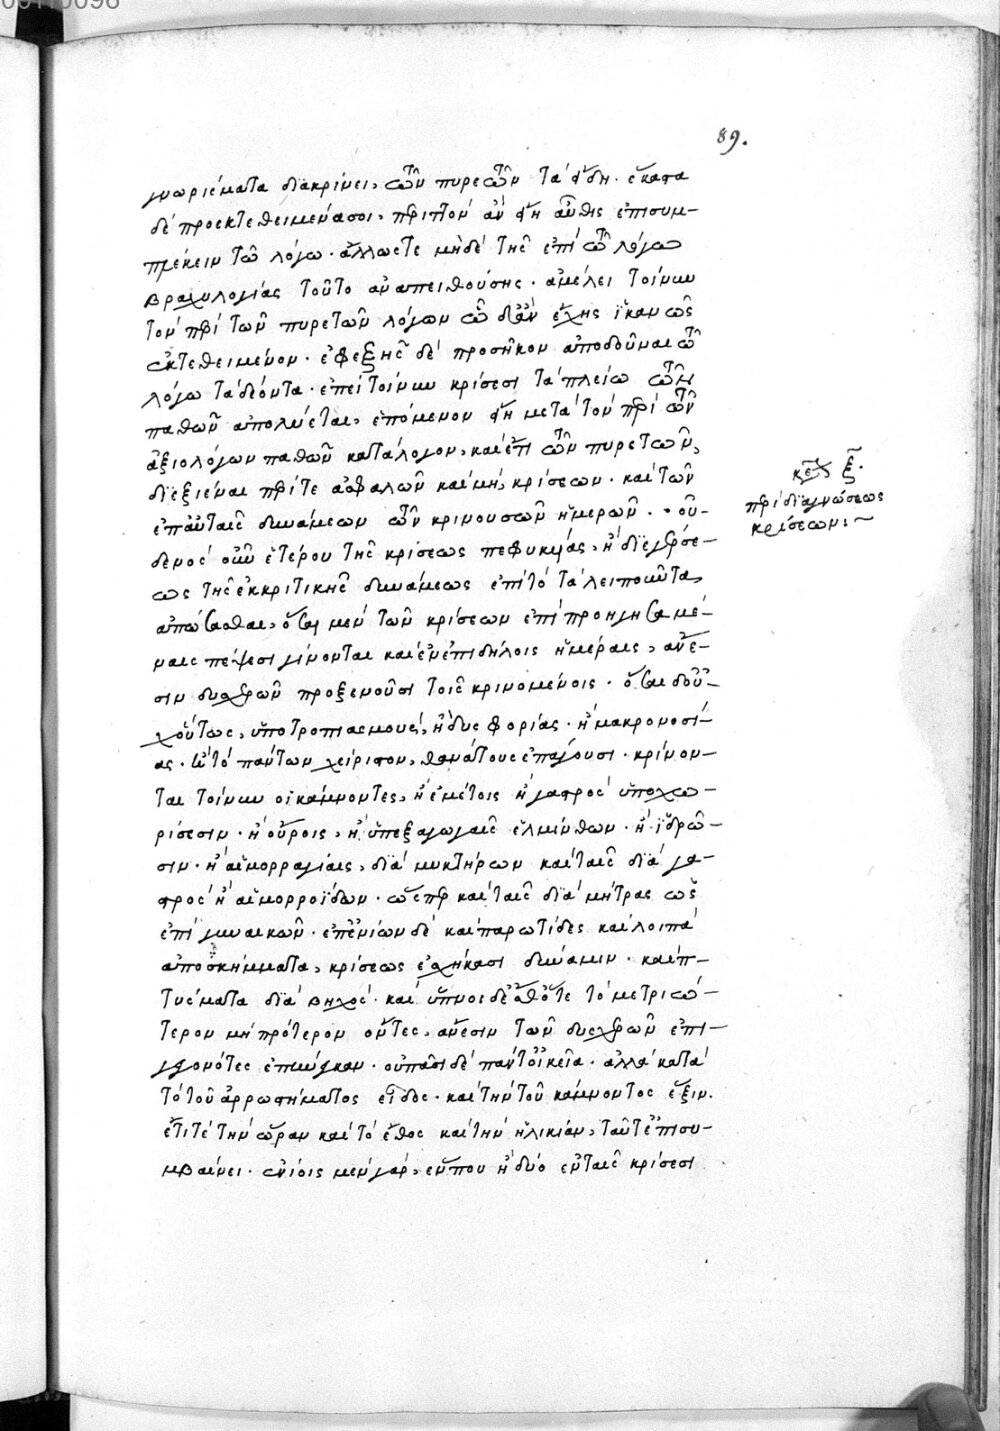 89.
γνωρίσματα διακρίνει, τῶν πυρετῶν τὰ εἴδη. ἕκαστα
δὲ προεκτεθειμένα σοι, περιττὸν ἂν εἴη αὖθις ἐπισυμ-
πλέκειν τῶ λόγω. ἄλλως τε μηδὲ τῆς ἐπὶ τῶ λόγω
βραχυλογίας τοῦτο ἀναπειθούσης. ἀμέλει τοίνυν
τὸν περὶ τῶν πυρετῶν λόγον ἔχεις ἱκανῶς
ἐκτεθειμένον. ἐφεξῆς δὲ προσῆκον ἀποδοῦναι τῶ
λόγω τὰ δέοντα. ἐπεὶ τοίνυν κρίσεσι τὰ πλείω τῶν
παθῶν ἀπολύεται, ἑπόμενον εἴη μετὰ τὸν περὶ τῶν
ἀξιολόγων παθῶν κατάλογον, καὶ ἐπὶ τῶν πυρετῶν,
διεξιέναι περί τε ἀσφαλῶν καὶ μὴ, κρίσεων. καὶ τῶν
ἐπ' αὐταῖς δυνάμεων τῶν κρινουσῶν ἡμερῶν. οὐ-
δενὸς οὖν ἑτέρου τῆς κρίσεως πεφυκυίας, ἢ διεγέρσε-
ως τῆς ἐκκριτικῆς δυνάμεως ἐπὶ τὸ τὰ λυποῦντα
ἀπώσασθαι, ὅσαι μὲν τῶν κρίσεων ἐπὶ προηγησαμέ-
ναις πέψεσι γίνονται καὶ ἐν ἐπιδήλοις ἡμέραις, ἄνε-
σιν δυσχερῶν προξενοῦσι τοῖς κρινομένοις. ὅσαι δ' οὐ-
χ οὕτως, ὑποτροπιασμοὺς, ἢ δυσφορίας. ἢ μακρονοσί-
ας. ἢ τὸ πάντων χείριστον, θανάτους ἐπάγουσι. κρίνον-
ται τοίνυν οἱ κάμνοντες, ἢ ἐμέτοις ἢ γαστρὸς ὑποχω-
ρήσεσιν. ἢ οὔροις, ἢ ὑπεξαγωγαῖς ἑλμίνθων. ἢ ἱδρῶ-
σιν. ἢ αἱμορραγίαις, διὰ μυκτήρων καὶ ταῖς διὰ γα-
στρὸς ἢ αἱμορροΐδων. ὥσπερ καὶ ταῖς διὰ μήτρας ὡς
ἐπὶ γυναικῶν. ἐπ' ἐνίων δὲ καὶ παρωτίδες καὶ λοιπὰ
ἀποσκήμματα, κρίσεως ἐσχήκασι δύναμιν. καὶ π-
τύσματα διὰ βηχὸς. καὶ ὕπνοι δὲ ἔσθ' ὅτε τὸ μετριώ-
τερον μὴ πρότερον ὄντες, ἄνεσιν τῶν δυσχερῶν ἐπι-
γεγονότες ἐπήνεγκαν. οὐ πᾶσι δὲ πάντ' οἰκεῖα. ἀλλὰ κατὰ
τὸ τοῦ ἀρρωστήματος εἶδος. καὶ τὴν τοῦ κάμνοντος ἕξιν.
ἔτι τὲ τὴν ὥραν καὶ τὸ ἔθος καὶ τὴν ἡλικίαν, ταῦτ' ἐπισυ-
μβαίνει. ἐνίοις μὲν γὰρ, εἴπου ἢ δύο ἐν ταῖς κρίσεσι
κεφ ξ.
περὶ διαγνώσεως
κρίσεων:~